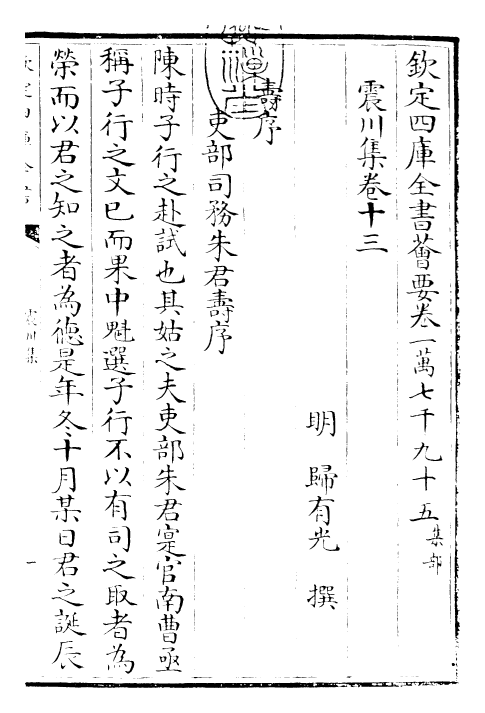 欽定四庫全書薈要卷一萬七千九十五集部
震川集卷十三
明 歸有光 撰
壽序
吏部司務朱君壽序
陳時子行之赴試也其姑之夫吏部朱君寔官南曹亟
稱子行之文已而果中魁選子行不以有司之取者為
榮而以君之知之者為德是年冬十月某日君之誕辰
欽定四庫全書
震川集
一